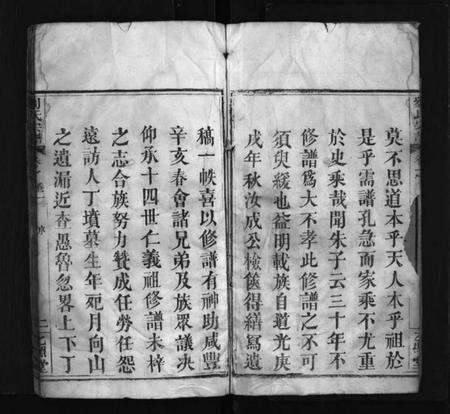 莫不思道本乎天人本乎祖於
是乎需譜孔急而家乘不尤重
於史乘哉聞朱子云三十年不
修譜為大不孝此修譜之不可
須臾緩也益明載族自道光庚
戌年秋汝成公檢篋得繕寫遺
稿一帙喜以修譜有神助咸豐
辛亥春會諸兄弟及族眾議决
仰承十四世仁義祖修譜未梓
之志合族努力贊成任勞任怨
遠訪人丁墳墓生年死月向山
之遺漏近杳愚魯忽畧上下丁